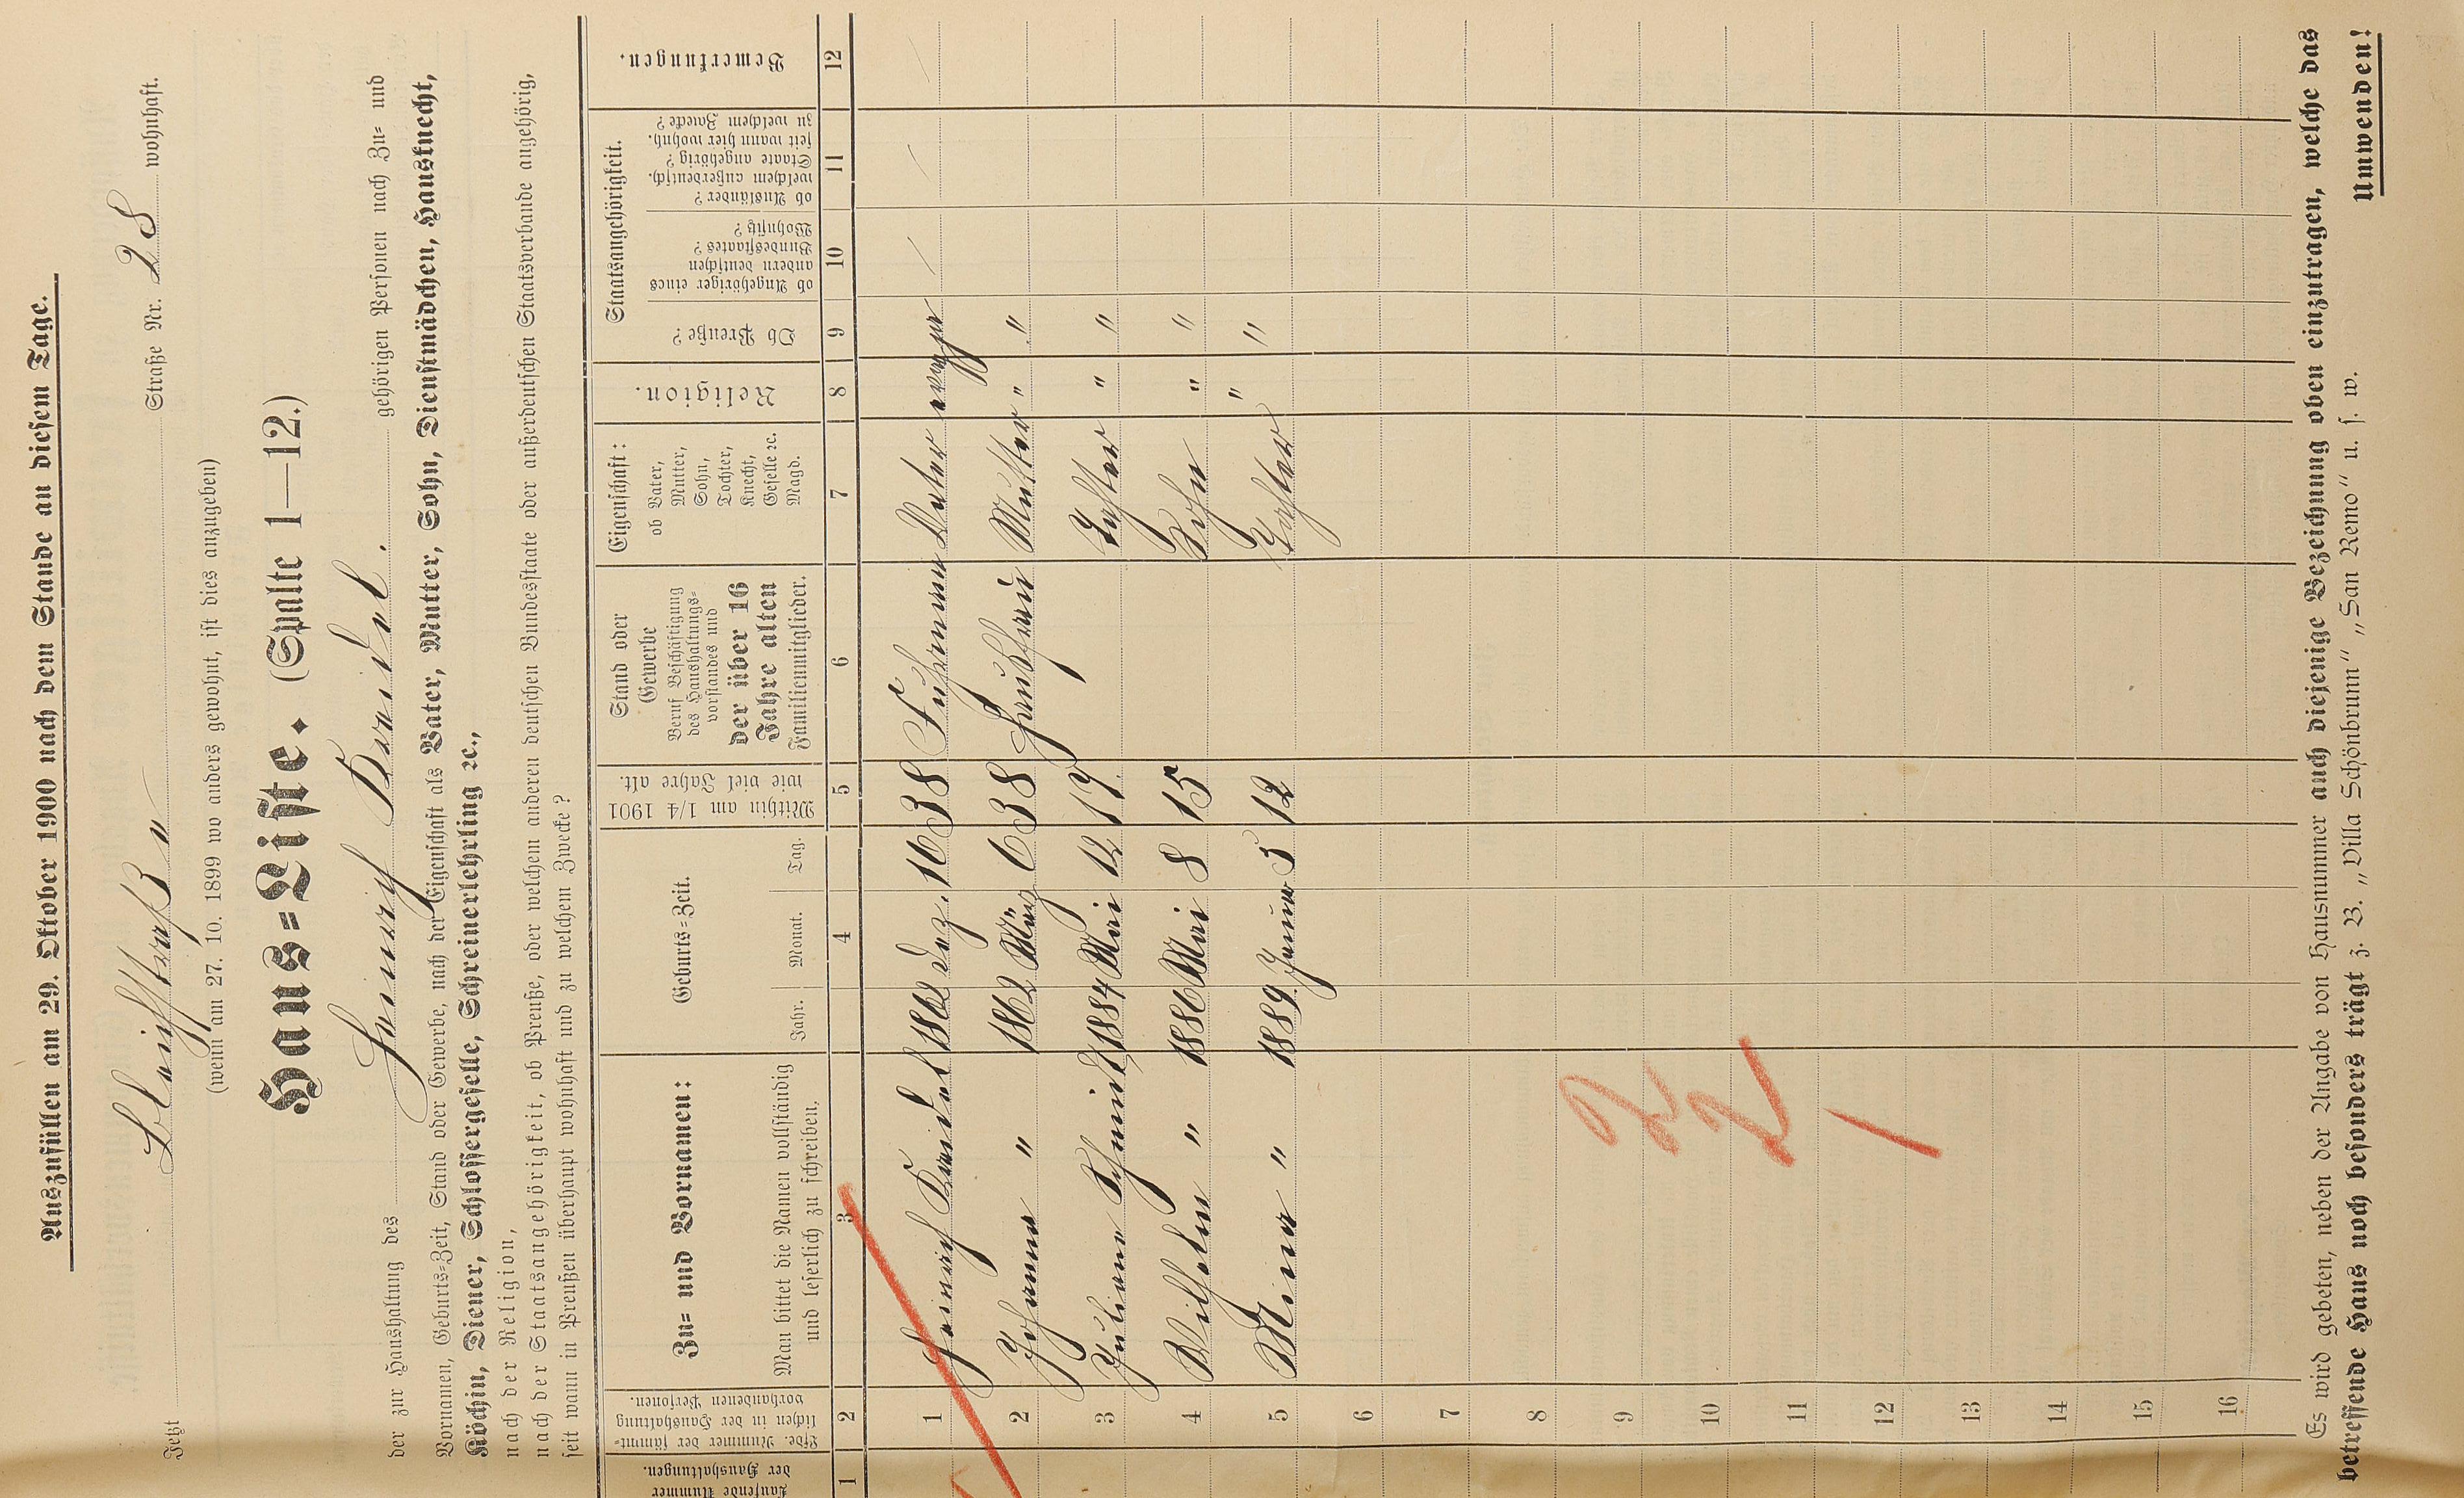 Auszufüllen am 29. Oktober 1900 nach dem Stande an diesem Tage.
Jetzt Bleichstraße Straße Nr. 28 wohnhaft.
(wenn am 27. 10. 1899 wo anders gewohnt, ist dies anzugeben)
Haus=Liste. (Spalte 1—12.)
der zur Haushaltung des Heinrich gehörigen Personen nach Zu= und
Vornamen, Geburts=Zeit, Stand oder Gewerbe, nach der Eigenschaft als Vater, Mutter, Sohn, Dienstmädchen, Hausknecht,
Köchin, Diener, Schlossergeselle, Schreinerlehrling ꝛc.,
nach der Religion,
nach der Staatsangehörigkeit, ob Preuße, oder welchem anderen deutschen Bundesstaate oder außerdeutschen Staatsverbande angehörig,
seit wann in Preußen überhaupt wohnhaft und zu welchem Zwecke?
Laufende Nummer
der Haushaltungen.
Lfde. Nummer der sämmt=
lichen in der Haushaltung
vorhandenen Personen.
Zu= und Vornamen:
Man bittet die Namen vollständig
und leserlich zu schreiben.
Geburts=Zeit.
Jahr. Monat. Tag.
Mithin am 1/4 1901
wie viel Jahre alt.
Stand oder
Gewerbe
Beruf Beschäftigung
des Haushaltungs=
vorstandes und
der über 16
Jahre alten
Familienmitglieder.
Eigenschaft:
ob Vater,
Mutter,
Sohn,
Tochter,
Knecht,
Geselle ꝛc.
Magd.
Religion.
Staatsangehörigkeit.
Ob Preuße?
ob Angehöriger eines
andern deutschen
Bundesstaates?
Wohnsitz?
ob Ausländer?
welchem außerdeutsch.
Staate angehörig?
seit wann hier wohnh.
zu welchem Zwecke?
Bemerkungen.
1 2 3 4 5 6 7 8 9 10 11 12
1 Heinrich 1862 Dez. 16 38 Fuhrmann Vater
2 Johanna " 1862 März 6 38 Hausfrau Mutter " "
3 Juliane Schmidt 1884 Mai 12 Tochter " "
4 Wilhelm " 1886 Mai 8 15 Sohn " "
5 Mina " 1889 Januar 5 12 Tochter " "
6
7
8
9
10
11
12
13
14
15
16
Es wird gebeten, neben der Angabe von Hausnummer auch diejenige Bezeichnung oben einzutragen, welche das
betreffende Haus noch besonders trägt z. B. „Villa Schönbrunn" „San Remo" u. s. w.
Umwenden!